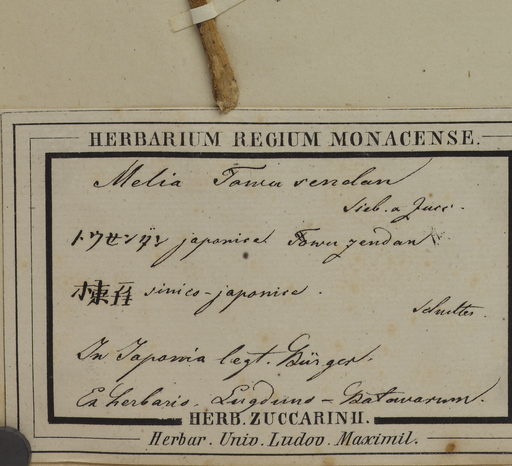 HERBARIUM REGIUM MONACENSE.
Melia Towu sendan
Sieb. a Zucc.
トウセンダン japonice. Towu zendan
sinico-japonice.
Schultes.
In Japonia legt. Bürger.
Ex herbario. Lugduno-Batavarum.
HERB. ZUCCARINII.
Herbar. Univ. Ludov. Maximil.